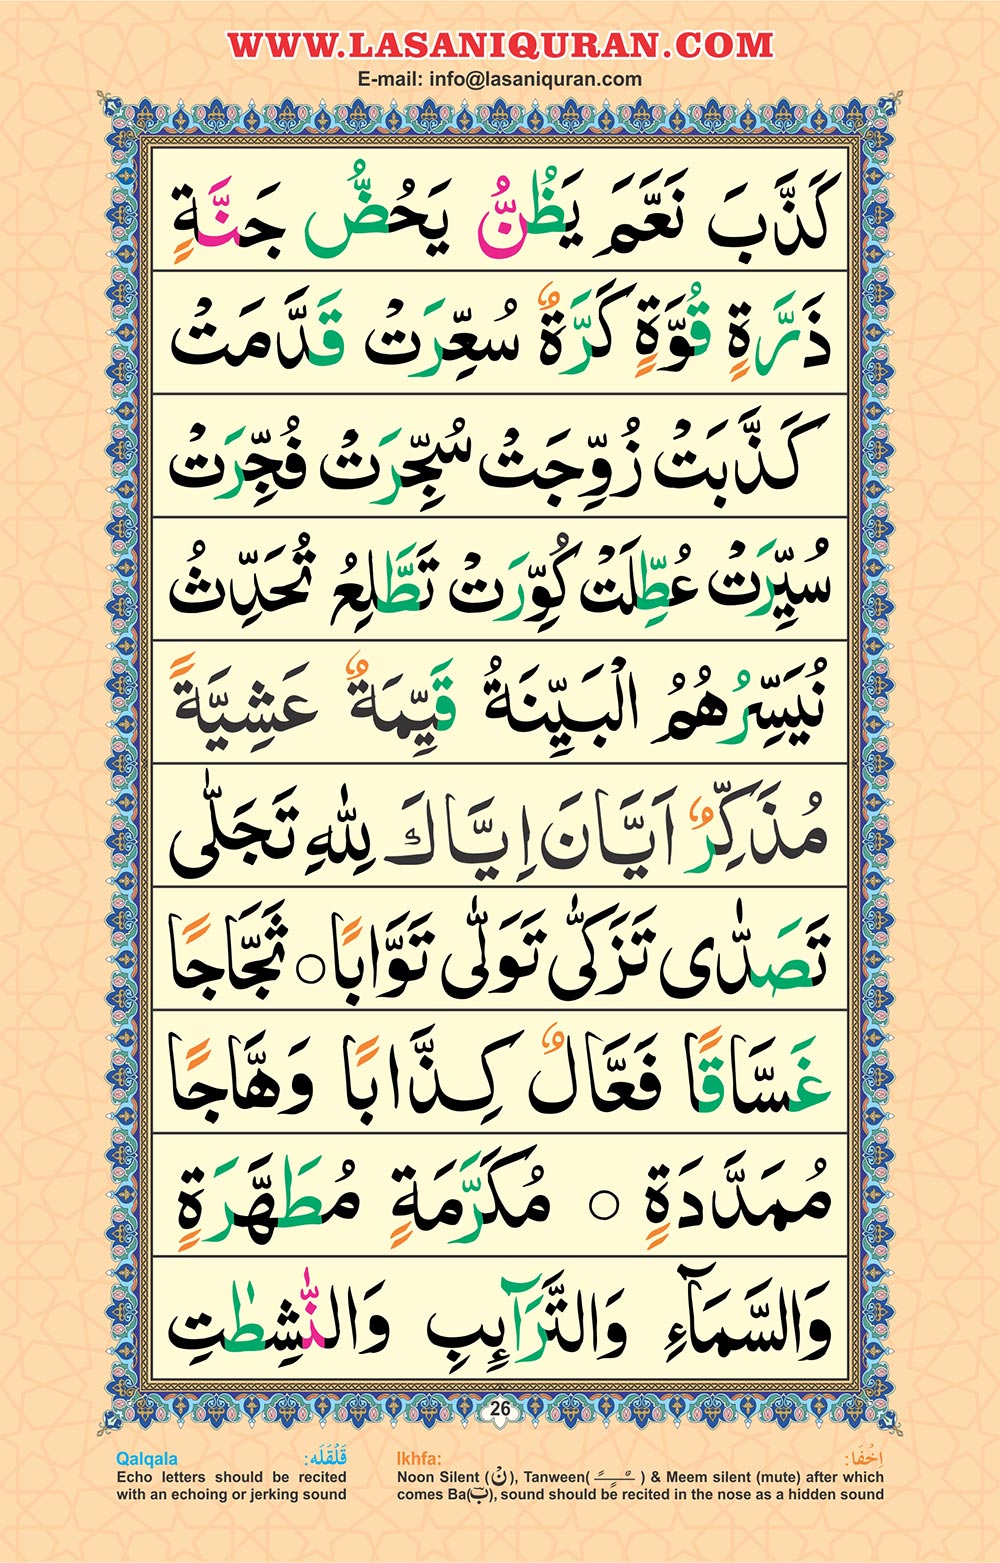 WWW.LASANIQURAN.COM
E-mail: info@lasaniquran.com
كَذَّبَ نَعَّمَ يَظُنُّ يَحُضُّ جَنَّةٍ
ذَرَّةٍ قُوَّةٍ كَرَّةٌ سُعِّرَتْ قَدَّمَتْ
كَذَّبَتْ زُوِّجَتْ سُجِّرَتْ فُجِّرَتْ
سُيِّرَتْ عُطِّلَتْ كُوِّرَتْ تَطَّلِعُ تُحَدِّثُ
نُيَسِّرُهُمُ الْبَيِّنَةُ قَيِّمَةٌ عَشِيَّةً
مُذَكِّرٌ اَيَّانَ اِيَّاكَ لِلّٰهِ تَجَلّٰى
تَصَدّٰى تَزَكّٰى تَوَلّٰى تَوَّابًا ○ ثَجَّاجًا
غَسَّاقًا فَعَّالٌ كِذَّابًا وَهَّاجًا
مُمَدَّدَةٍ ○ مُكَرَّمَةٍ مُطَهَّرَةٍ
وَالسَّمَآءِ وَالتَّرَآئِبِ وَالنّٰشِطٰتِ
26
Qalqala قَلْقَلَه:
Echo letters should be recited
with an echoing or jerking sound
Ikhfa: اِخْفَا:
Noon Silent (نْ), Tanween( ـًـٍـٌ ) & Meem silent (mute) after which
comes Ba(ب), sound should be recited in the nose as a hidden sound